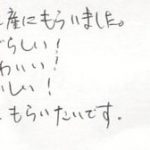 産にもらいました。
らしい!
わいい!
いしい!
もらいたいです.